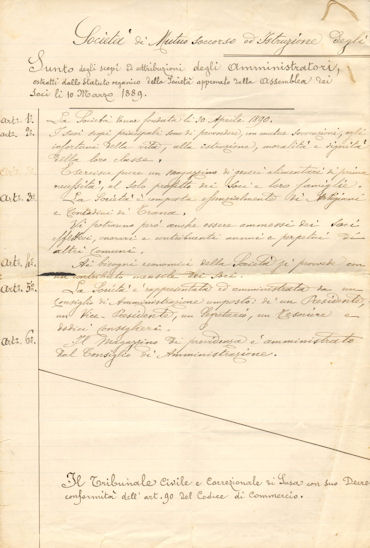 Società di Mutuo Soccorso ed Istruzione degli
Sunto degli scopi ed attribuzioni degli Amministratori,
estratti dallo Statuto organico della Società approvato dalla Assemblea dei
Soci li 10 Marzo 1889.
Art. 1º. La Società venne fondata li 30 Aprile 1890.
Art. 2º. I suoi scopi principali sono di provvedere, con mutue sovvenzioni, agli
infortuni della vita, alla istruzione, moralità e dignità
della loro classe.
Esercisce pure un magazzino di generi alimentari di prima
necessità, al solo profitto dei Soci e loro famiglie.
Art. 3º. La Società è composta di Artigiani
e Contadini di
Vi potranno però anche essere ammessi dei Soci
effettivi, onorari e contribuenti annui e perpetui di
altri comuni.
Art. 4º. Ai bisogni economici della Società si provvede con
un contributo mensile dei Soci.
Art. 5º. La Società è rappresentata ed amministrata da un
Consiglio di Amministrazione composto di un Presidente,
un Vice-Presidente, un Segretario, un Tesoriere e
dodici Consiglieri.
Art. 6º. Il Magazzino di previdenza è amministrato
dal Consiglio di Amministrazione.
Il Tribunale Civile e Correzionale di Susa con suo Decre
conformità dell'art. 90 del Codice di Commercio.